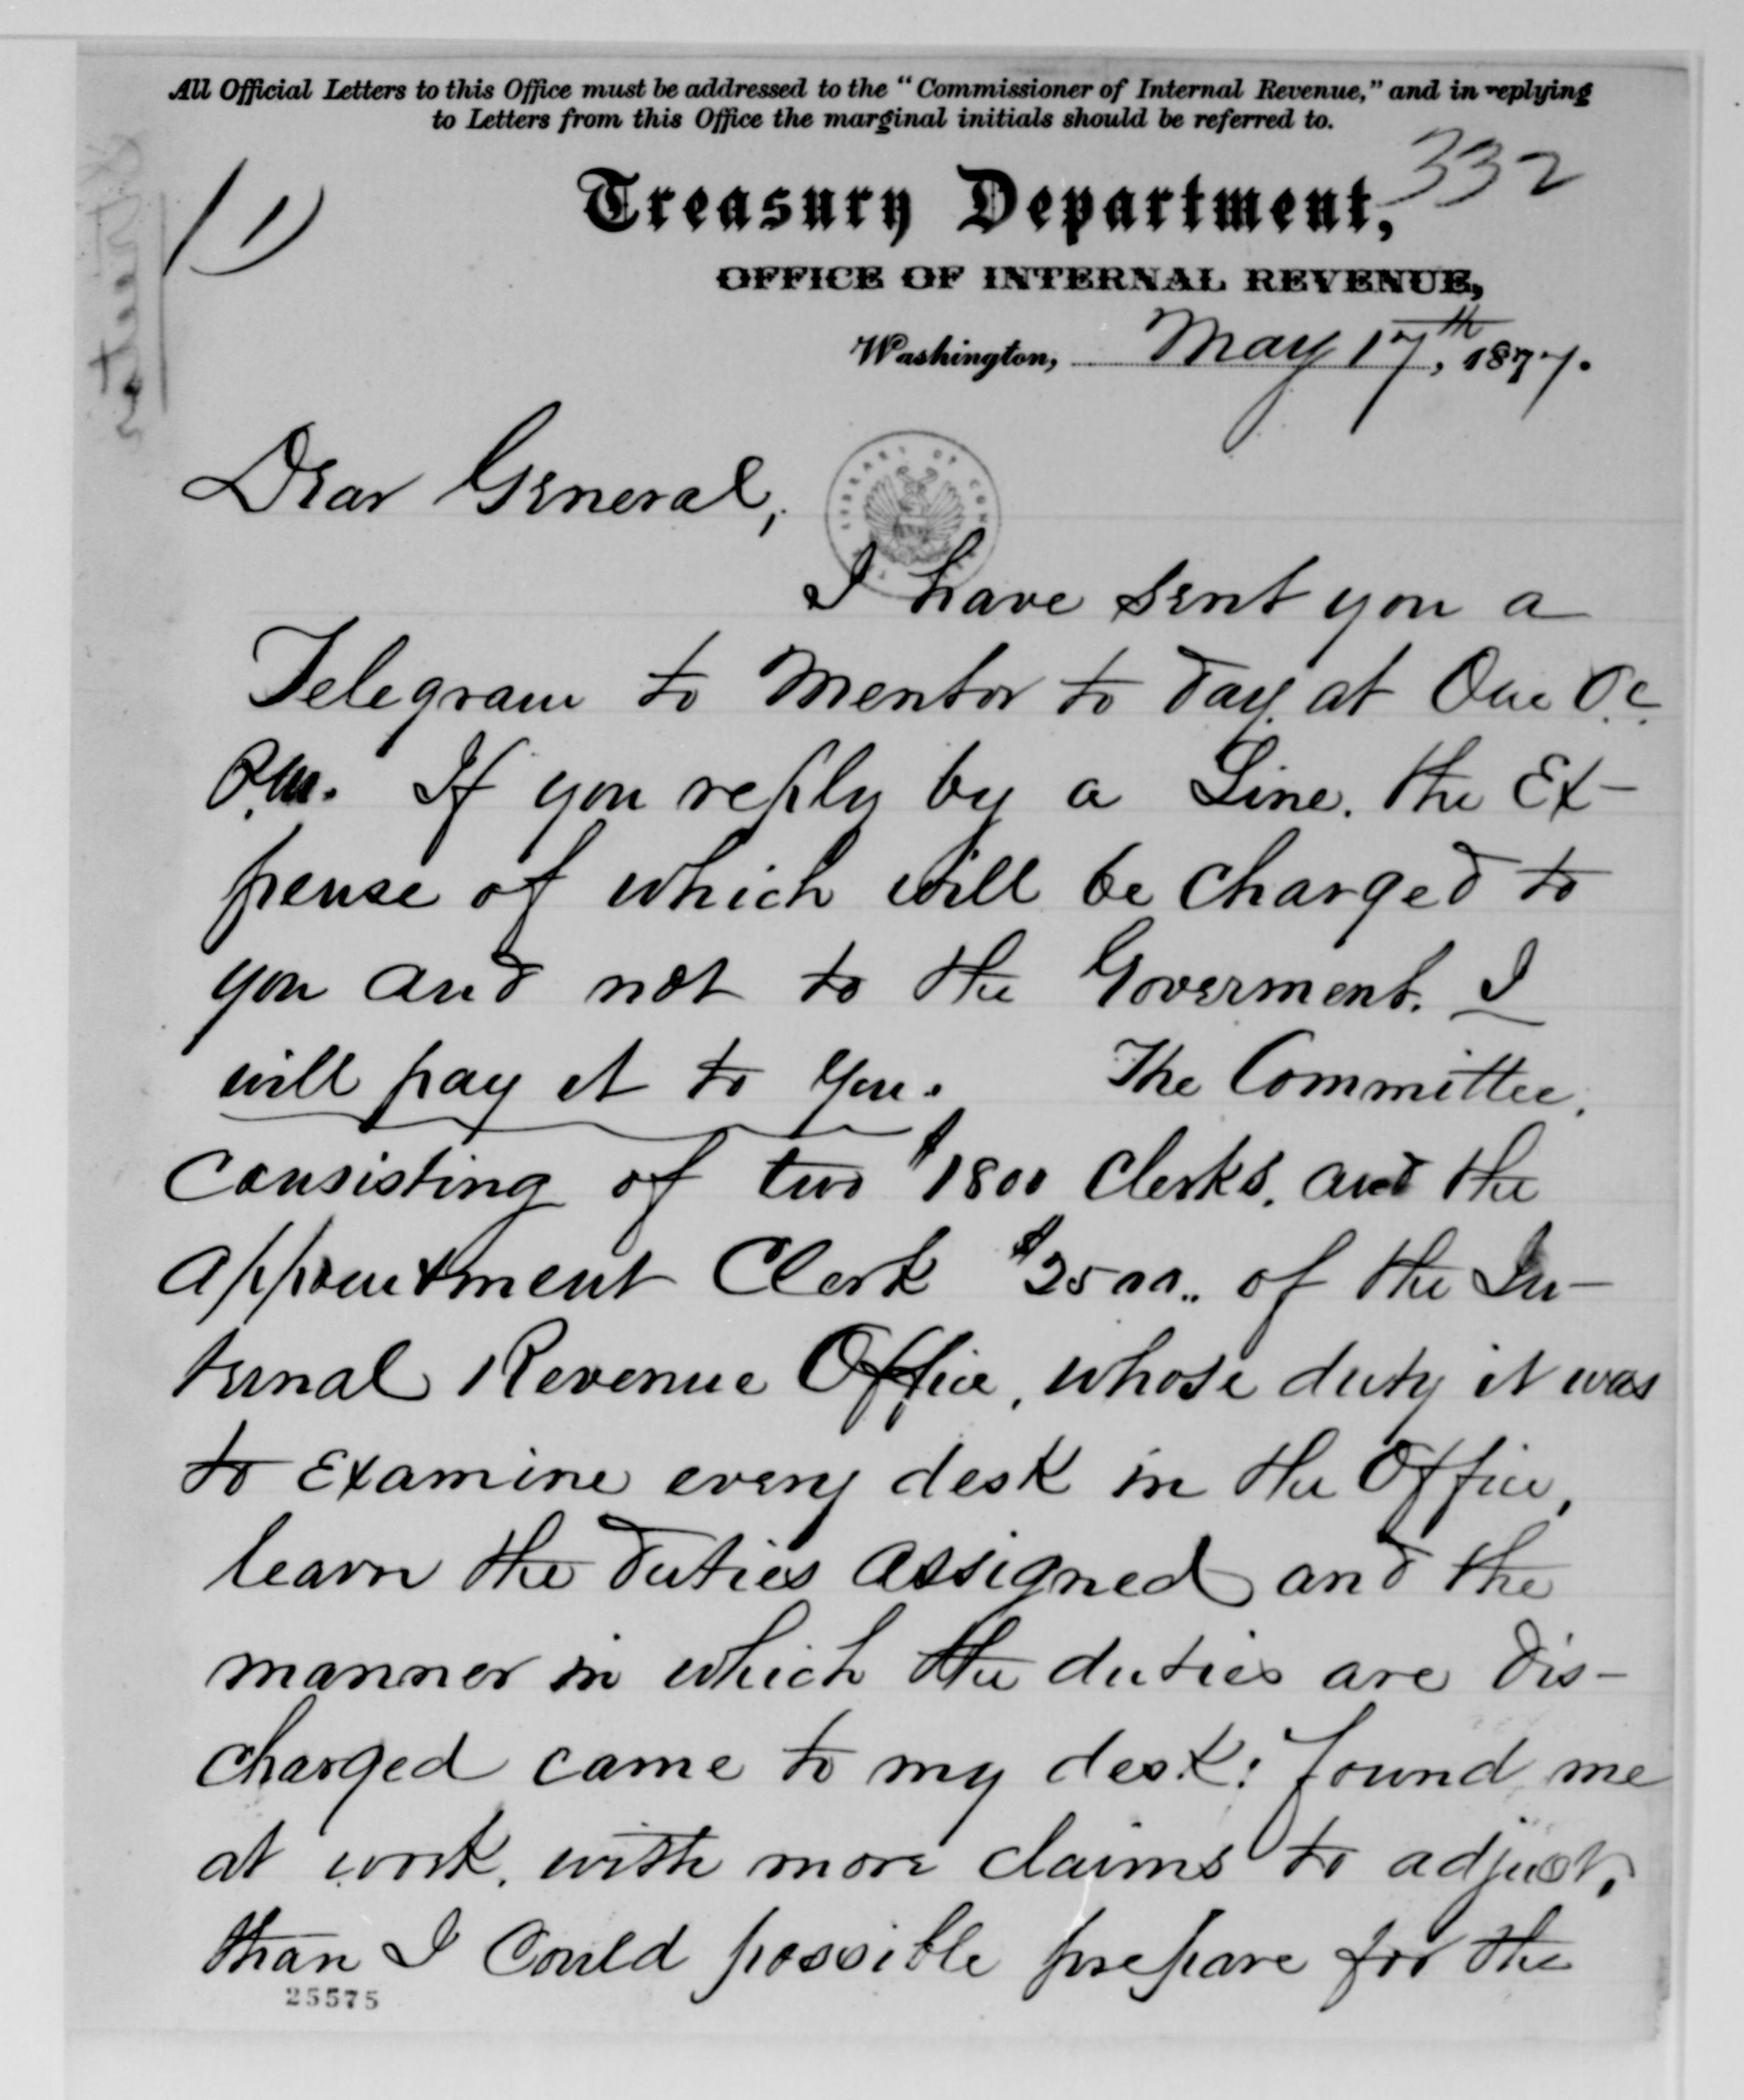 All Official Letters to this Office must be addressed to the "Commissioner of Internal Revenue," and in replying
to Letters from this Office the marginal initials should be referred to.
332
(1)
Treasury Department,
OFFICE OF INTERNAL REVENUE,
Washington, May 17th, 1877.
Dear General,
LIBRARY OF CON
I have sent you a
Telegram to Mentor to day at One O.C.
P.M. If you reply by a Line. the Ex-
pense of which will be charged to
you and not to the Goverment. I
will pay it to you. The Committee.
Consisting of two $1800 Clerks. and the
Appointment Clerk $2500.. of the In-
ternal Revenue Office, whose duty it was
to Examine every desk in the Office,
learn the duties assigned and the
manner in which the duties are dis-
charged came to my desk: found me
at work. with more claims to adjust,
than I Could possible prepare for the
25575